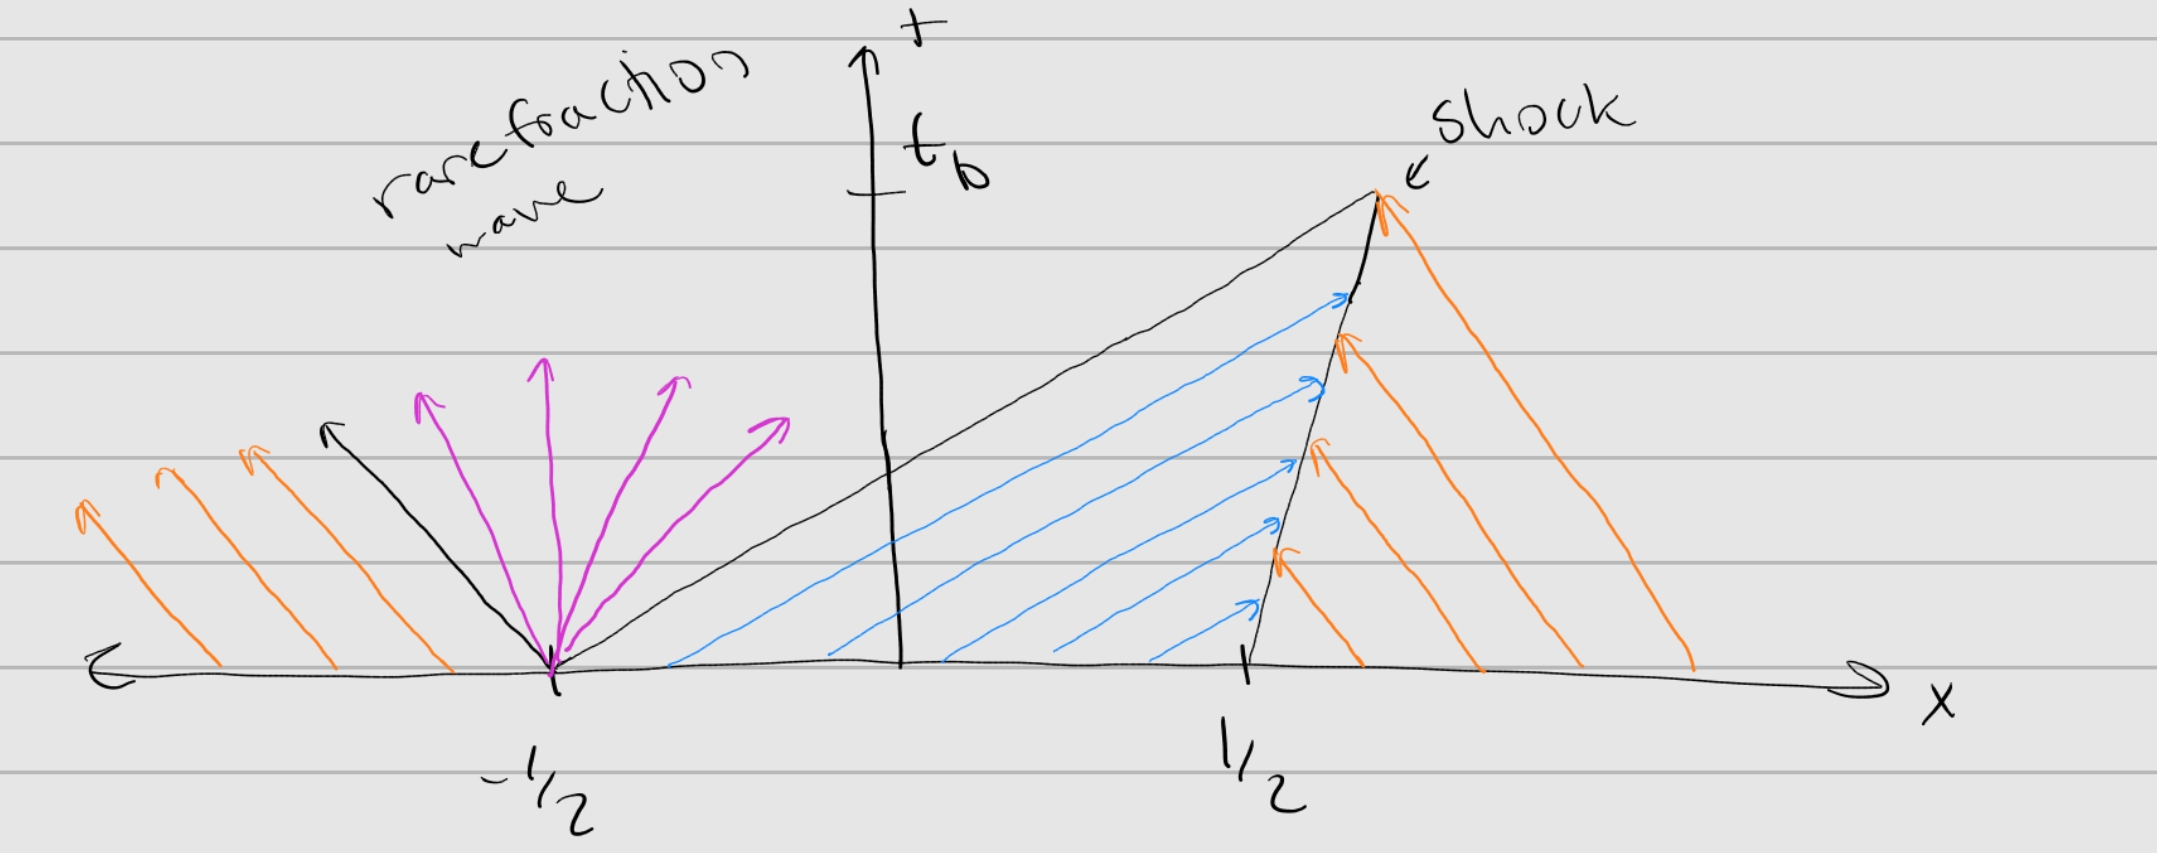 t
rarefraction
wave
t_b
shock
x
-1/2
1/2